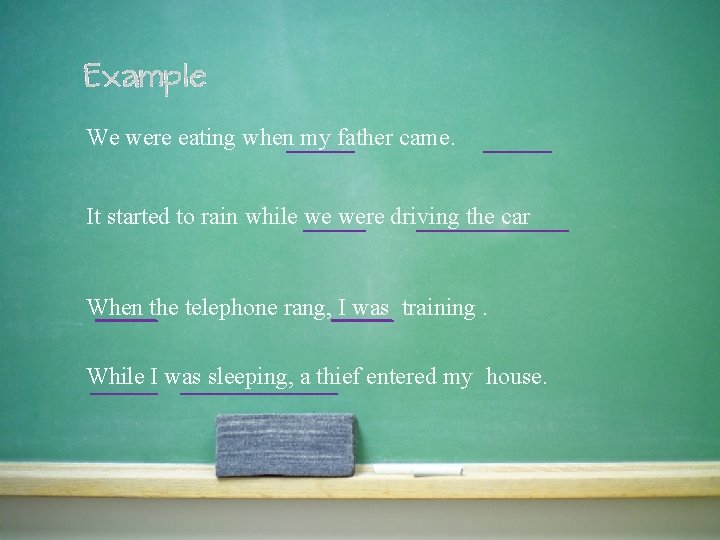 Example
We were eating when my father came.
It started to rain while we were driving the car
When the telephone rang, I was training .
While I was sleeping, a thief entered my house.